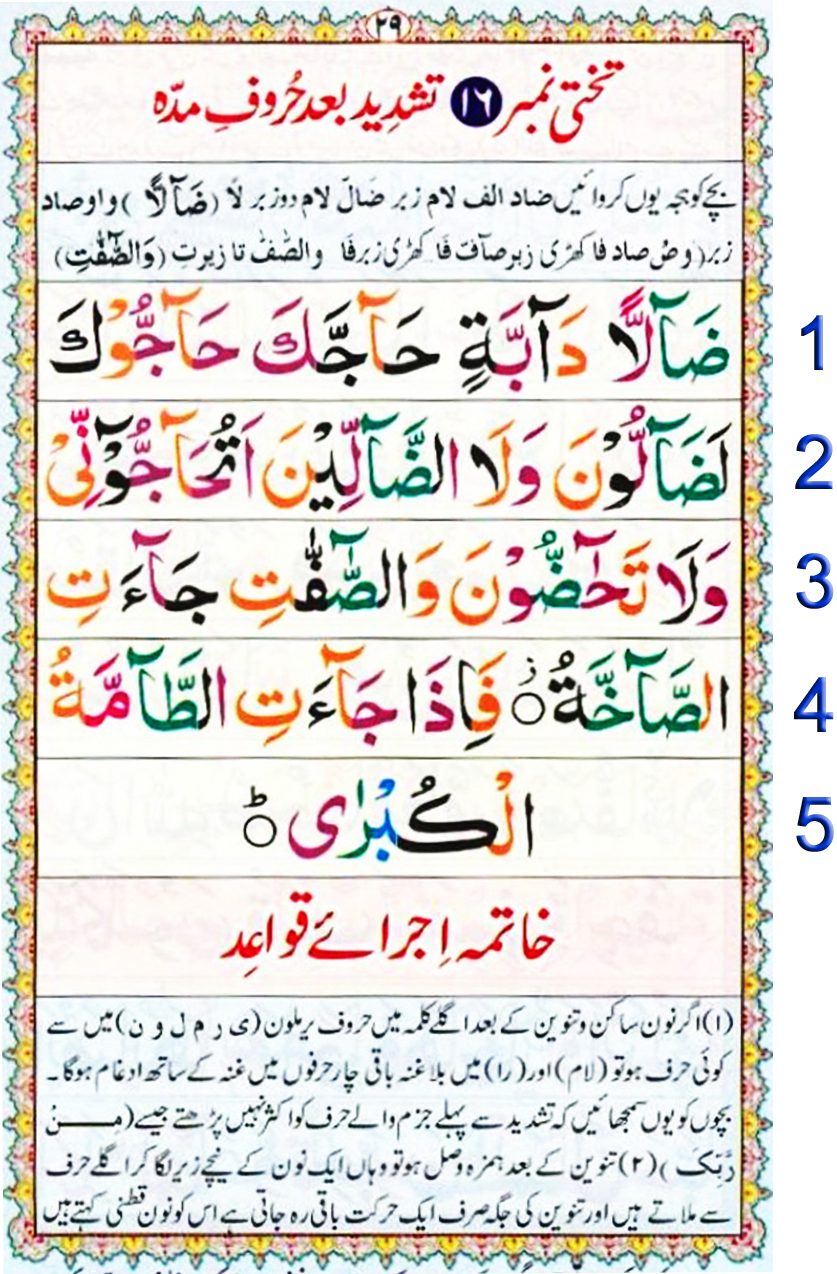 ٢٩
تختی نمبر ١٦ تشدِید بعد حُروفِ مدّہ
بچے کو ہجہ یوں کروائیں ضاد الف لام زبر ضَالّ لام دوزبر لًا (ضَآلًّا) واو صاد
زبر (وَصْ صاد فا کھڑی زبر صآفّ فَا کھڑی زبر فٰا والصّٰفّٰ تا زیرتِ (وَالصّٰٓفّٰتِ)
ضَآلًّا دَآبَّةٍ حَآجَّكَ حَآجُّوْكَ
1
لَضَآلُّوْنَ وَلَا الضَّآلِّيْنَ اَتُحَآجُّوْٓنِّىْ
2
وَلَا تَحٰٓضُّوْنَ وَالصّٰٓفّٰتِ جَآءَتِ
3
الصَّآخَّةُ ۟ؗ فَاِذَا جَآءَتِ الطَّآمَّةُ
4
الْكُبْرٰى ۟ؕ
5
خاتمہ اِجرائے قواعِد
(١) اگر نون ساکن وتنوین کے بعد اگلے کلمہ میں حروف یرملون (ی ر م ل و ن) میں سے
کوئی حرف ہوتو (لام) اور (را) میں بلاغنہ باقی چار حرفوں میں غنہ کے ساتھ ادغام ہوگا ۔
بچوں کو یوں سمجھائیں کہ تشدید سے پہلے جزم والے حرف کو اکثر نہیں پڑھتے جیسے (مِنْ
رَّبِّكَ) (٢) تنوین کے بعد ہمزہ وصل ہوتو وہاں ایک نون کے نیچے زیر لگا کر اگلے حرف
سے ملاتے ہیں اور تنوین کی جگہ صرف ایک حرکت باقی رہ جاتی ہے اس کو نون قطنی کہتے ہیں